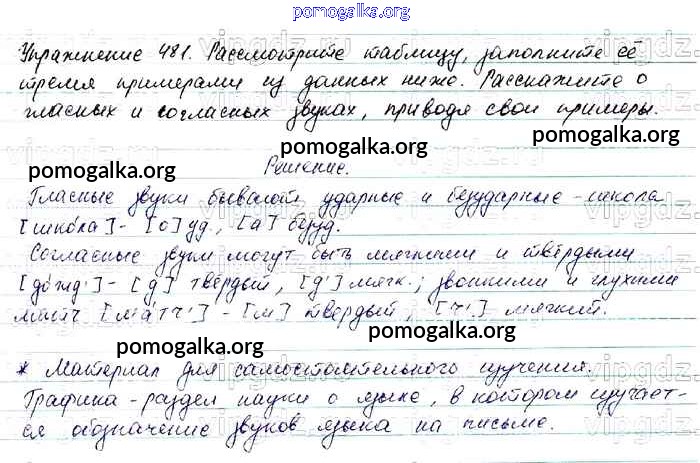 pomogalka.org
Упражнение 481. Рассмотрите таблицу, заполните её
тремя примерами из данных ниже. Расскажите о
гласных и согласных звуках, приводя свои примеры.
pomogalka.org
pomogalka.org
Решение.
Гласные звуки бывают ударные и безударные - школа
[шко́ла] - [о] уд., [а] безуд.
Согласные звуки могут быть мягкими и твёрдыми
[до́жд'] - [д] твёрдый, [д'] мягк.; звонкими и глухими
матч [ма́тч'] - [м] твёрдый, [ч'] мягкий.
pomogalka.org
pomogalka.org
* Материал для самостоятельного изучения.
Графика - раздел науки о языке, в котором изучает-
ся обозначение звуков языка на письме.
pomogalka.org